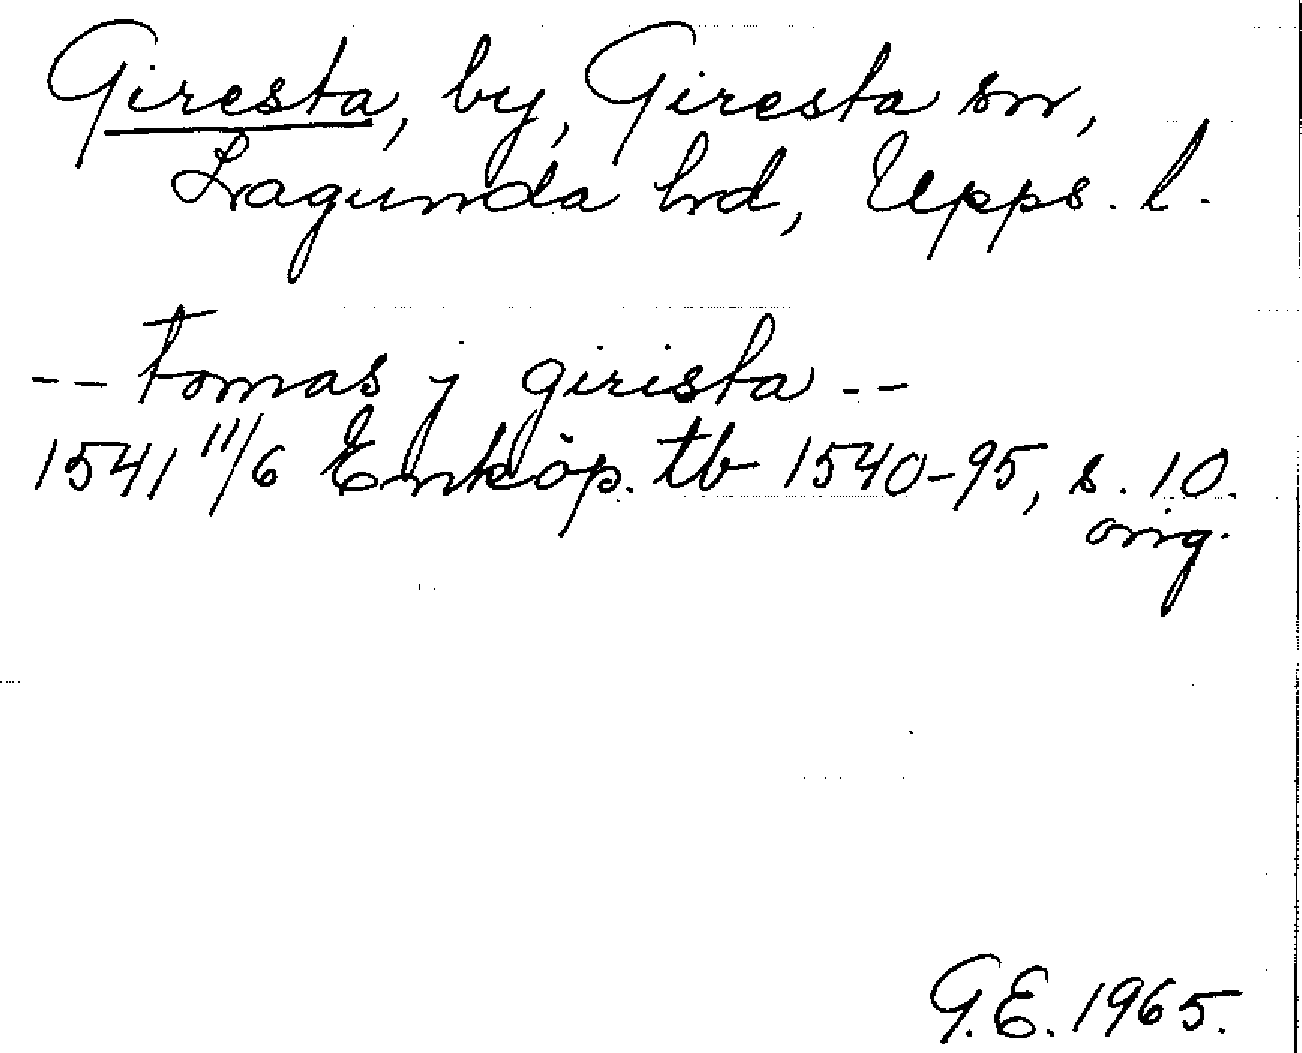 Giresta, by, Giresta sn,
Lagunda hd, Upps. l.
-- tomas j girista --
1541 11/6 Enköp. tb 1540-95, s. 10.
orig.
G.E. 1965.